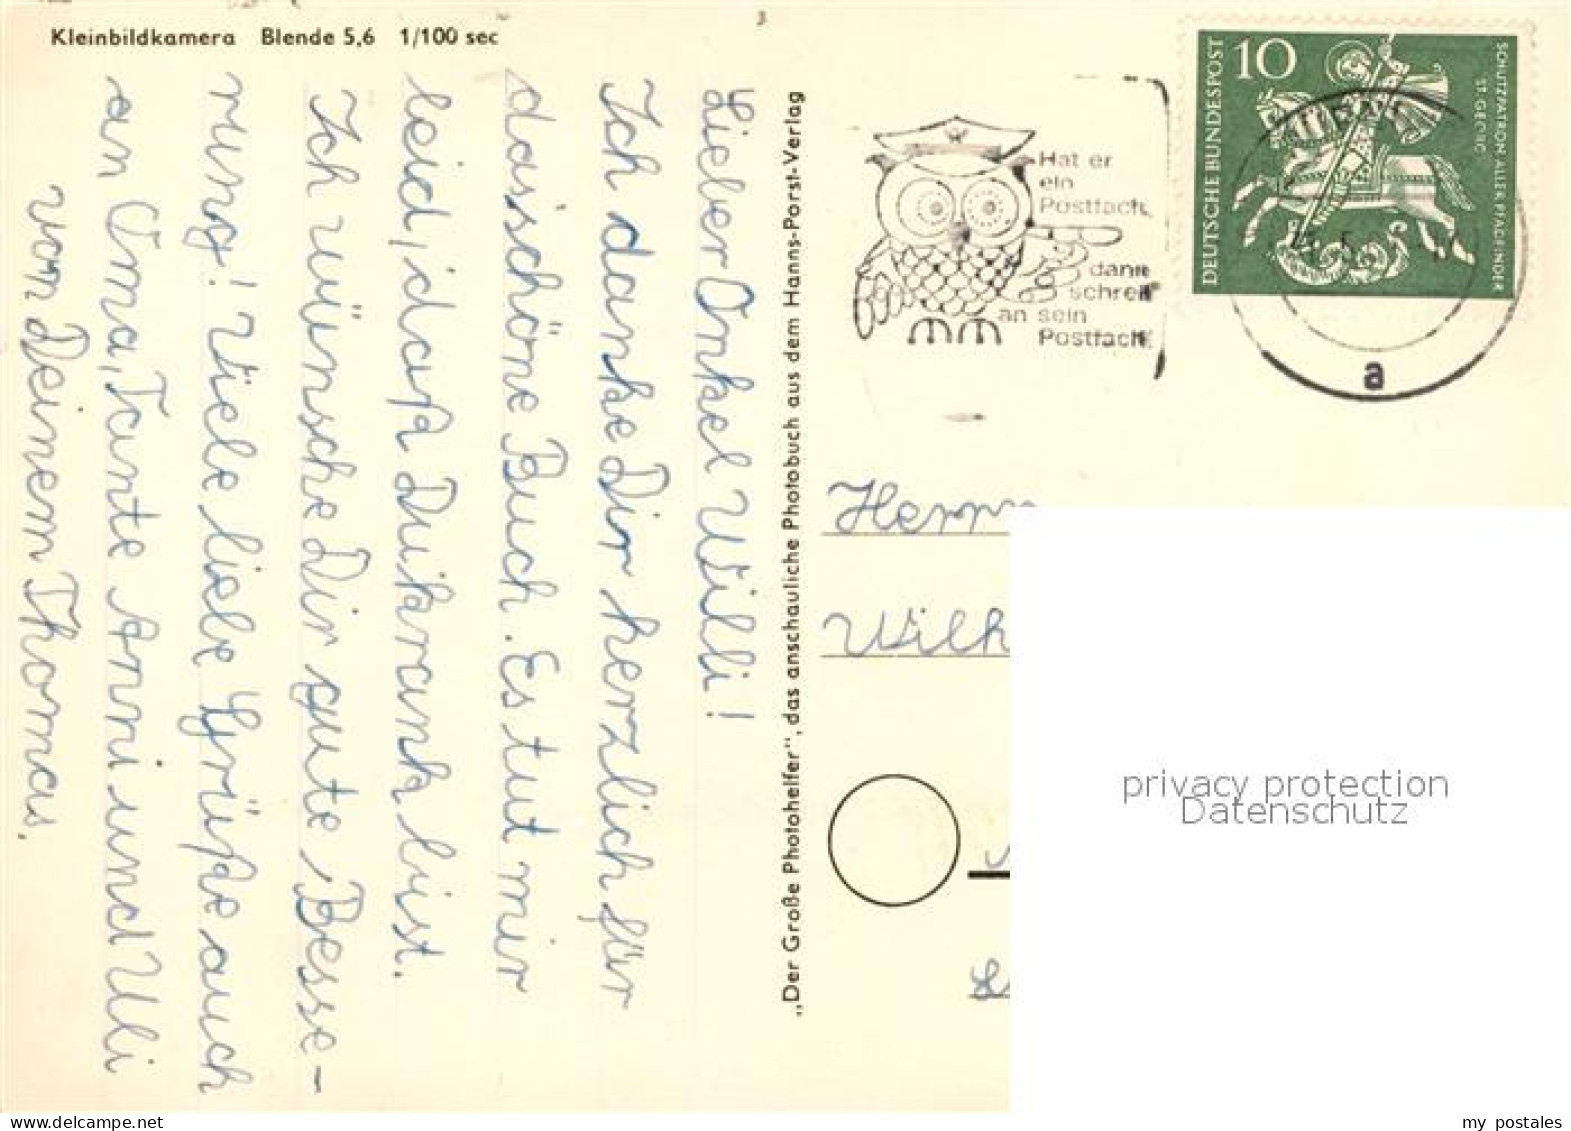 Kleinbildkamera Blende 5,6 1/100 sec
Lieber Onkel Willi!
Ich danke Dir herzlich für
das schöne Buch. Es tut mir
leid, daß Du krank bist.
Ich wünsche Dir gute Besse-
rung! Viele liebe Grüße auch
an Oma, Tante Anni und Uli
von Deinem Thomas.
„Der Große Photohelfer", das anschauliche Photobuch aus dem Hanns-Porst-Verlag
3
Hat er
ein
Postfach
dann
schreib
an sein
Postfach
10
DEUTSCHE BUNDESPOST
SCHUTZPATRON ALLER PFADFINDER
ST. GEORG
a
Herrn
Wilh
privacy protection
Datenschutz
www.delcampe.net
my_postales